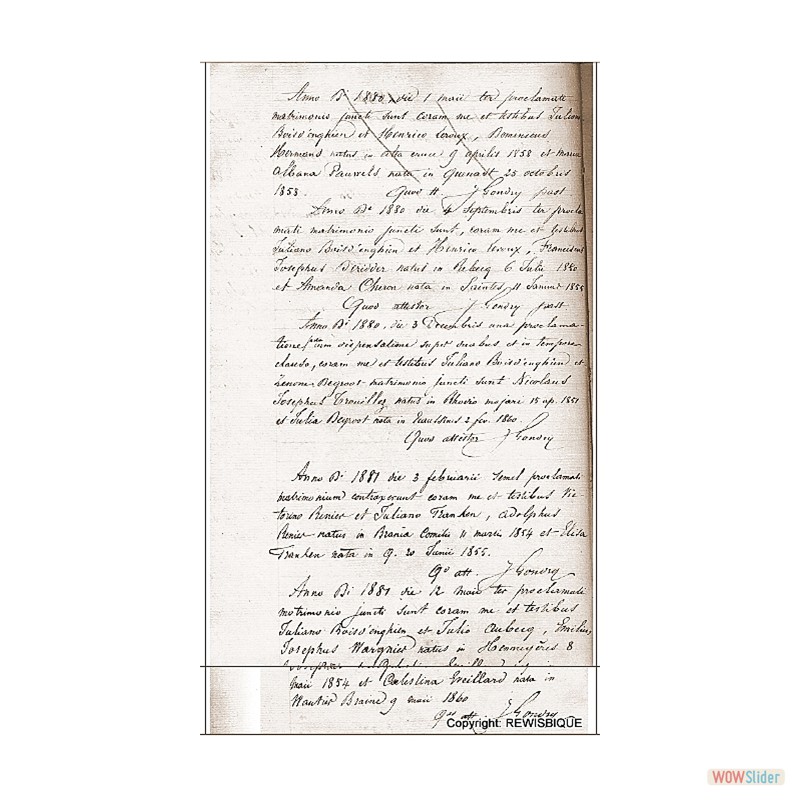 Anno Di 1880 die 1 maii ter proclamati
matrimonio juncti sunt coram me et testibus Juliano
Boisd'enghien et Henrico Leroux, Domenicus
Hermans natus in alta cruce 9 aprilis 1858 et maria
Albana Pauwels nata in Quenast 25 octobris
1858. Quod tt. J Gondry past
Anno Di 1880 die 4 Septembris ter procla
mati matrimonio juncti sunt, coram me et testibus
Juliano Boisd'enghien et Henrico Leroux, Franciscus
Josephus Deridder natus in Rebecq 6 Julii 1850
et Amanda Cheron nata in Saintes 11 Januar 1855
Quod attestor J Gondry past
Anno Di 1880, die 3 Decembris una proclama-
tione, cum dispensatione super duabus et in tempore
clauso, coram me et testibus Juliano Boisd'enghien et
Zenone Degroot matrimonio juncti sunt Nicolaus
Josephus Trouillez natus in Rhodio majore 15 ap. 1851
et Julia Degroot nata in 2 fev. 1860.
Quod attestor J Gondry
Anno Di 1881 die 3 februarii Semel proclamati
matrimonium contraxerunt coram me et testibus Vic
torino Renier et Juliano Tranken, Adolphus
Renier natus in Brania Comitis 11 martii 1854 et Elisa
Tranken nata in Q. 20 Junii 1855.
Qd att. J Gondry
Anno Di 1881 die 12 maii ter proclamati
matrimonio juncti sunt coram me et testibus
Juliano Boisd'enghien et Julio Aubecq, Emilius
Josephus Wargnier natus in Hennuyères 8
maii 1854 et Cœlestina Greillard nata in
Wautier Braine 9 maii 1860
Qd att. J Gondry
Copyright: REWISBIQUE
WOWSlider